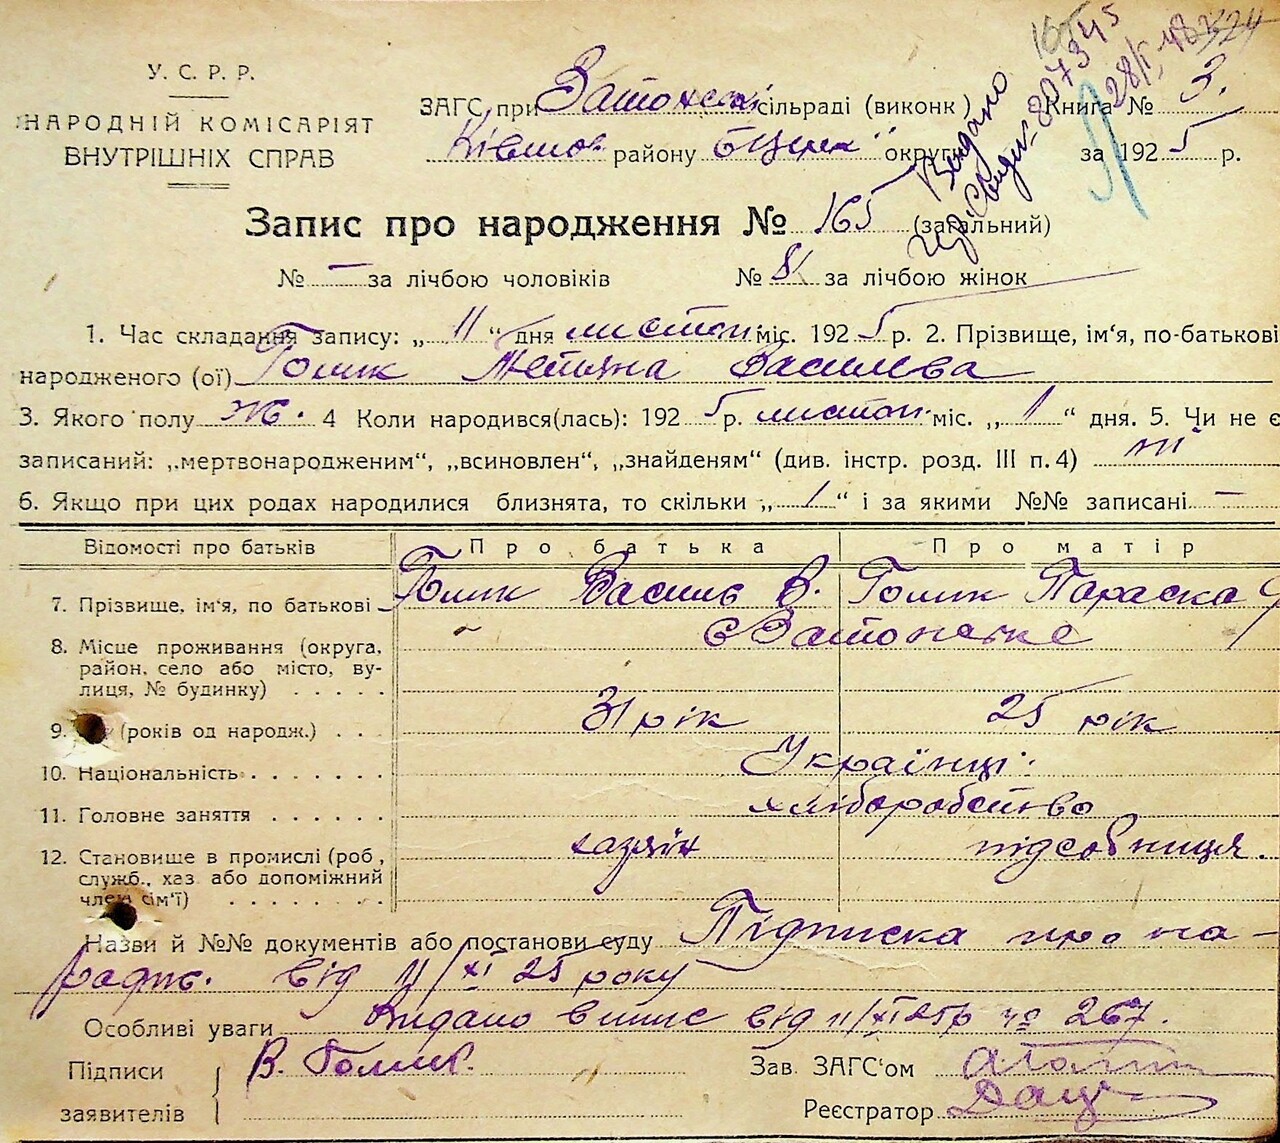 У. С. Р. Р.
НАРОДНІЙ КОМІСАРІЯТ
ВНУТРІШНІХ СПРАВ
ЗАГС при Затонськ сільраді (виконк ) Книга № 3.
району Бцерк округи за 1925 р.
Видано
807345
28/
Запис про народження № 165 (загальний)
№ – за лічбою чоловіків № 81 за лічбою жінок
1. Час складання запису: „ 11 “ дня листоп. міс. 1925 р. 2. Прізвище, ім‘я, по-батькові
народженого (ої) Голик Тетяна Василева
3. Якого полу ж. 4 Коли народився(лась): 1925 р. листоп. міс. „ 1 “ дня. 5. Чи не є
записаний: „мертвонародженим“, „всиновлен“, „знайденям“ (див. інстр. розд. III п. 4) ні
6. Якщо при цих родах народилися близнята, то скільки „ 1 “ і за якими №№ записані –
Відомості про батьків Про батька Про матір
7. Прізвище, ім‘я, по батькові Голик Василь В. Голик Параска
8. Місце проживання (округа, район, село або місто, вулиця, № будинку) с Затонське
9. (років од народж.) 31 рік 25 рік
10. Національність Українці
11. Головне заняття хліборобство
12. Становище в промислі (роб., служб., хаз. або допоміжний член сім‘ї) хазяїн підсобниця.
Назви й №№ документів або постанови суду Підписка про на-
родж. від 11/XI 25 року
Особливі уваги Видано випис від 11/XI 25р № 267.
Підписи В. Голик. Зав. ЗАГС‘ом
заявителів Реєстратор